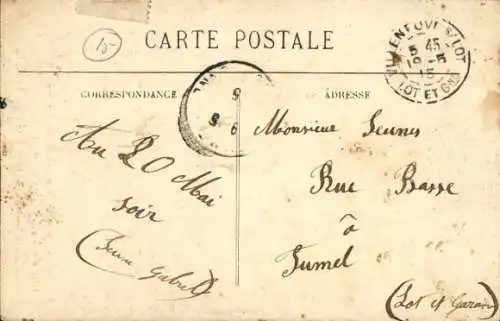 15
CARTE POSTALE
VILLENEUVE S/LOT
5 45
19-5
15
LOT ET GNE
CORRESPONDANCE
ADRESSE
Au 20 Mai
soir
Monsieur Jeunes
Rue Basse
à
Fumel
(Lot et Garonne)